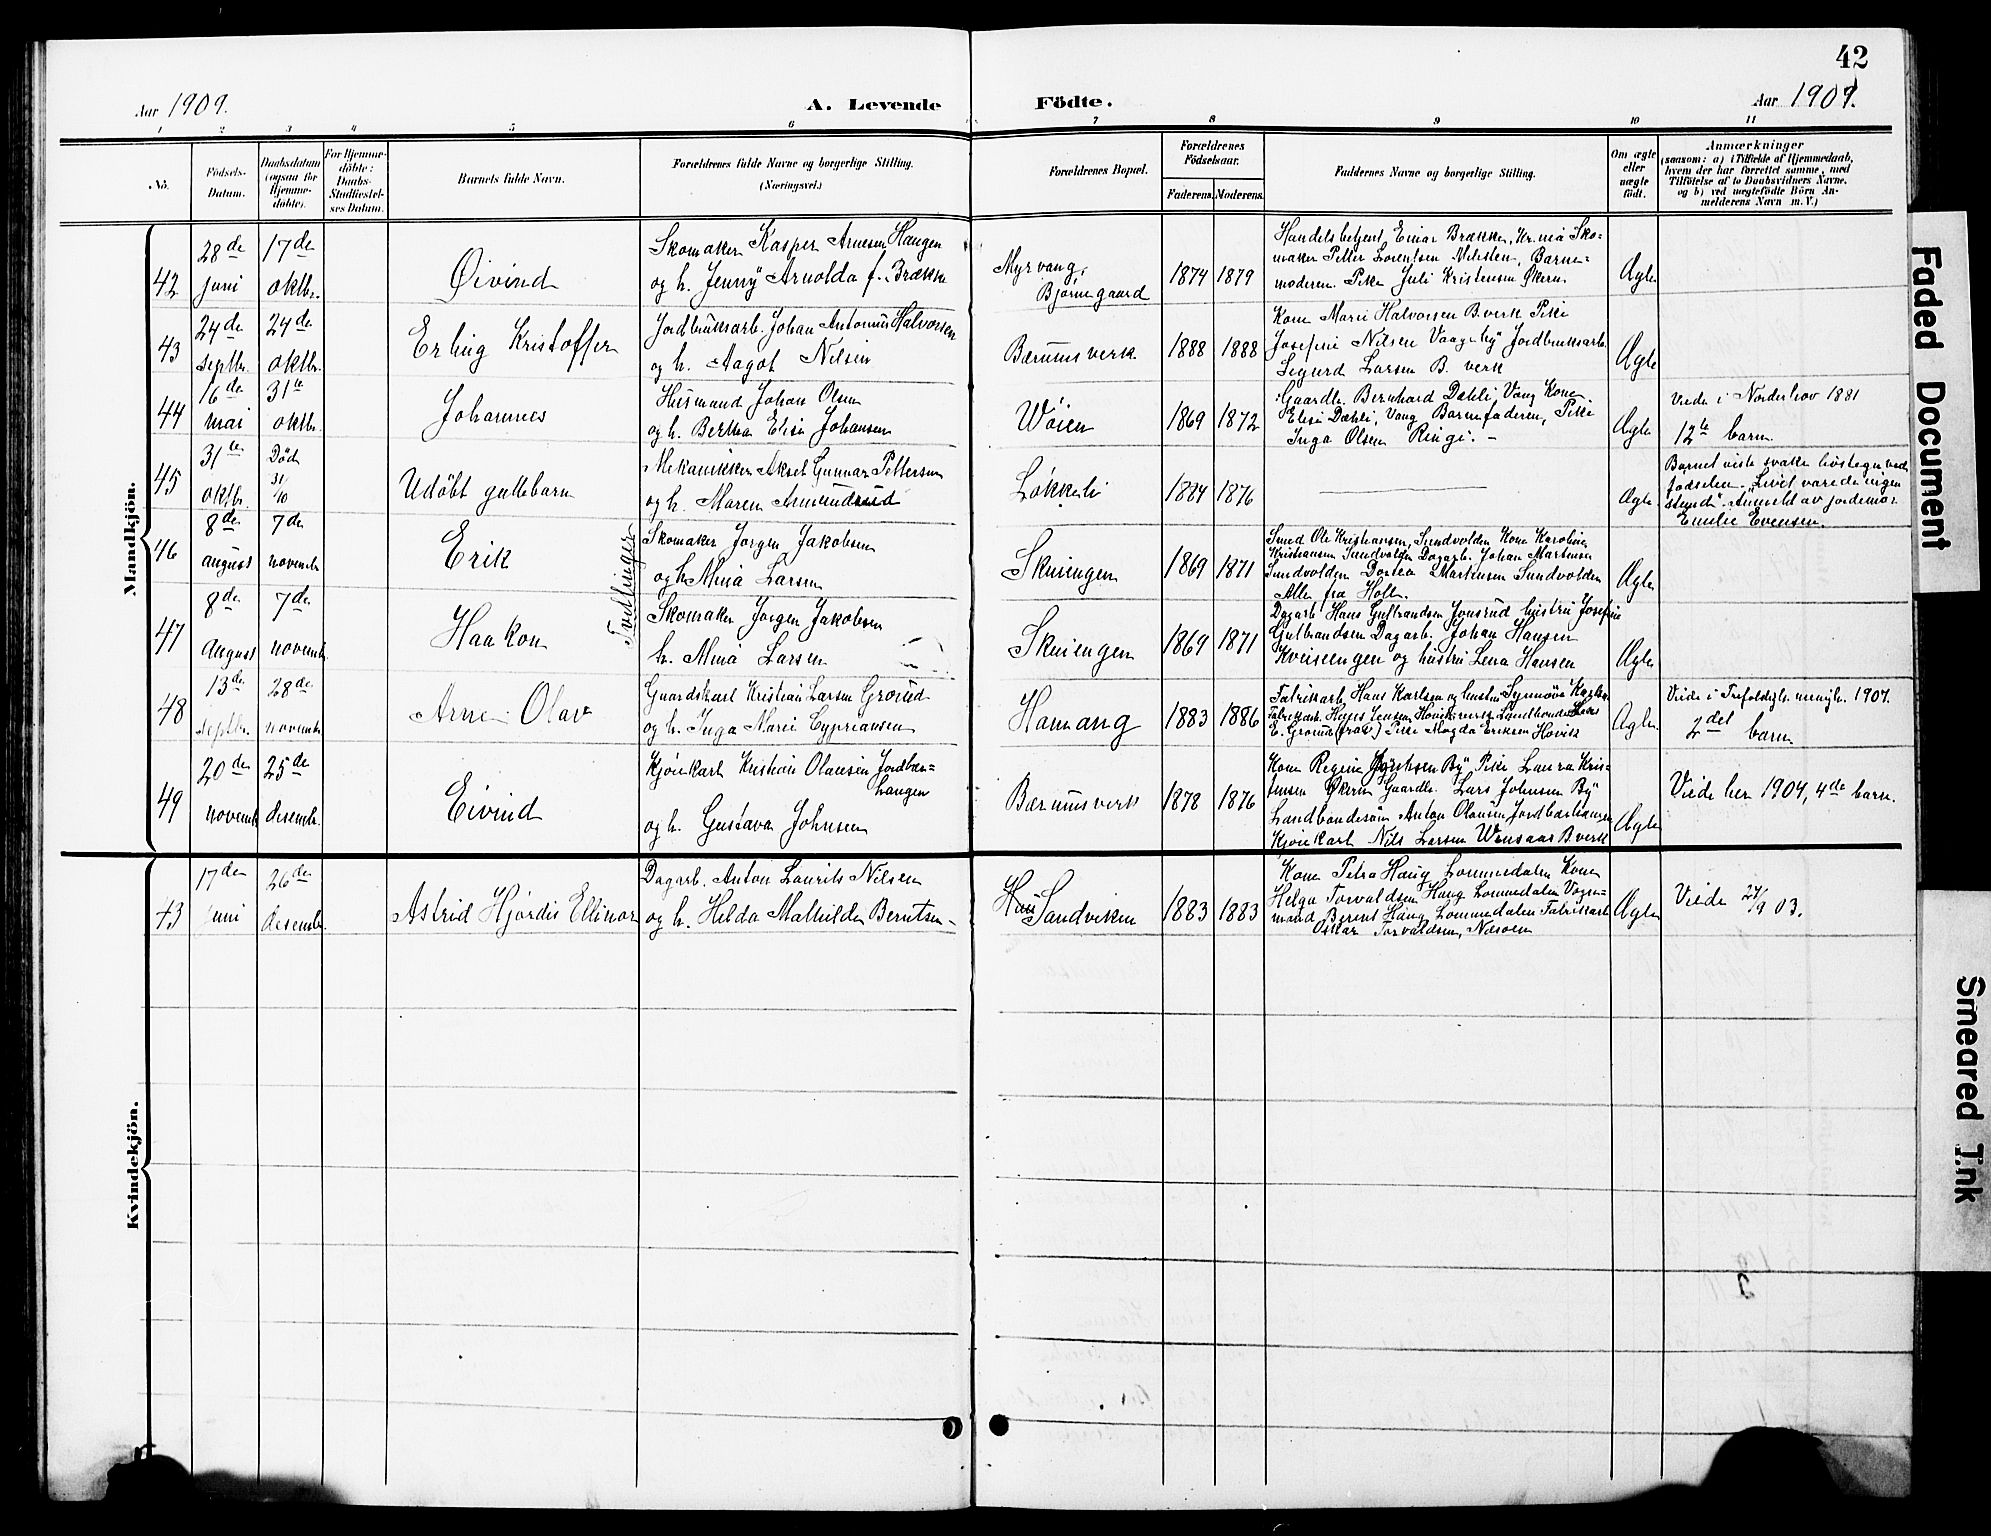 42
Aar 1909.
A. Levende
Födte.
Aar 1909.
1 2 3 4 5 6 7 8 9 10 11
No.
Födsels-
Datum.
Daabsdatum
(ogsaa for
Hjemme-
döbte).
For Hjemme-
döbte:
Daabs-
Stadfæstel-
ses Datum.
Barnets fulde Navn.
Forældrenes fulde Navne og borgerlige Stilling.
(Næringsvei.)
Forældrenes Bopæl.
Forældrenes
Födselsaar.
Faderens.
Moderens.
Faddernes Navne og borgerlige Stilling.
Om ægte
eller
uægte
født.
Anmærkninger
(saasom: a) i Tilfælde af Hjemmedaab,
hvem der har forrettet samme, med
Tilföielse af to Daabsvidners Navne,
og b) ved uegtefödte Börn An-
melderens Navn m. V.)
Mandkjön.
42
28de
juni
17de
oktbr.
Øivind
Skomaker Kasper Arnesen Haugen
og h. Jenny Arnolda f. Brække
Myrvang,
Bjørnegaard
1874
1879
Handelsbetjent Einar Brække, Kr.nia Sko-
maker Petter Lorentsen Nilsten, Barne-
moderen. Pike Juli Kristensen Økern
Ægte
43
24de
septbr.
24de
oktbr.
Erling Kristoffer
Jordbruksarb. Johan Antonius Halvorsen
og h. Aagot Nilsen
Bærumsverk
1888
1888
Kone Marie Halvorsen B.verk Pike
Josefine Nilsen Vaageby Jordbruksarb.
Sigurd Larsen B. verk
Ægte
44
16de
mai
31te
oktbr.
Johannes
Husmand Johan Olsen
og h. Bertha Elise Johansen
Wøien
1869
1872
Gaardbr. Bernhard Dæhli, Vang Kone
Elise Dæhli, Vang Barnefaderen, Pike
Inga Olsen Ringi. –
Ægte
Viede i Norderhov 1881
12te barn
45
31te
oktbr.
Død
31/10
Udøbt guttebarn
Mekanikker Aksel Gunnar Pettersen
og h. Maren Amundsrud
Løkkeli
1884
1876
Ægte
Barnet viste svake livstegn ved
fødselen. Livet varede ingen
stund. Anmeldt av jordemor
Emilie Evensen.
46
8de
august
7de
novembr
Erik
Tvillinger
Skomaker Jørgen Jakobsen
og h. Mina Larsen
Skuiengen
1869
1871
Smed Ole Kristiansen, Sundvolden Kone Karoline
Kristiansen Sundvolden Dagarb. Johan Martinsen
Sundvolden Dortea Martinsen Sundvolden
Alle fra Hole.
Ægte
47
8de
August
7de
novembr.
Haakon
Skomaker Jørgen Jakobsen
h. Mina Larsen
Skuiengen
1869
1871
Dagarb Hans Gulbrandsen Jonsrud hustru Josefine
Gulbrandsen Dagarb. Johan Hansen
og hustru Lena Hansen
Ægte
48
13de
septbr.
28de
novembr
Arne Olav
Gaardskarl Kristian Larsen Grorud
og h. Inga Marie Cypriansen
Hamang
1883
1886
Fabrikarb. Hans Karlsen og hustru Synnøve Karlsen
Fabrikarb. Hans Jensen Høviksverk Landhandler Hans
E. Grorud Pike Magda Eriksen Høvik
Ægte.
Viede i Trefoldigh. menigh. 1907.
2det barn
49
20de
novembr
25de
desembr.
Eivind
Kjørekarl Kristian Olausen Jordbær-
haugen
og h. Gustava Johnsen
Bærumsverk
1878
1876
Kone Regine By Pike Laura Kris-
tensen Økern Gaardbr. Lars Johnsen By
Landbandesøn Anton Olausen Jordbærhaugen
Kjørekarl Nils Larsen B.verk
Ægte
Viede her 1904, 4de barn.
Kvindekjön.
43
17de
juni
26de
desembr.
Astrid Hjørdis Ellinor
Dagarb. Anton Laurits Nilsen
og h. Hilda Mathilde Berntsen
Sandviken
1883
1883
Kone Petra Haug Lommedalen Kone
Helga Torvaldsen Haug Lommedalen Vogn-
mand Bernt Haug Lommedalen Fabrikarb
Oskar Torvaldsen, Nesøen
Ægte
Viede 27/9 03.
Faded Document
Smeared Ink